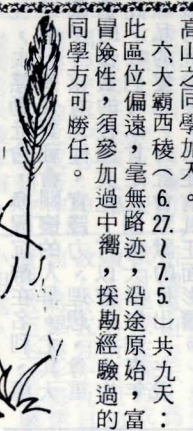 高山之同學加入。
六、大霸西稜（6. 27.～7. 5.）共九天：
此區位偏遠，毫無路迹，沿途原始，富
冒險性，須參加過中嚮，採勘經驗過的
同學方可勝任。